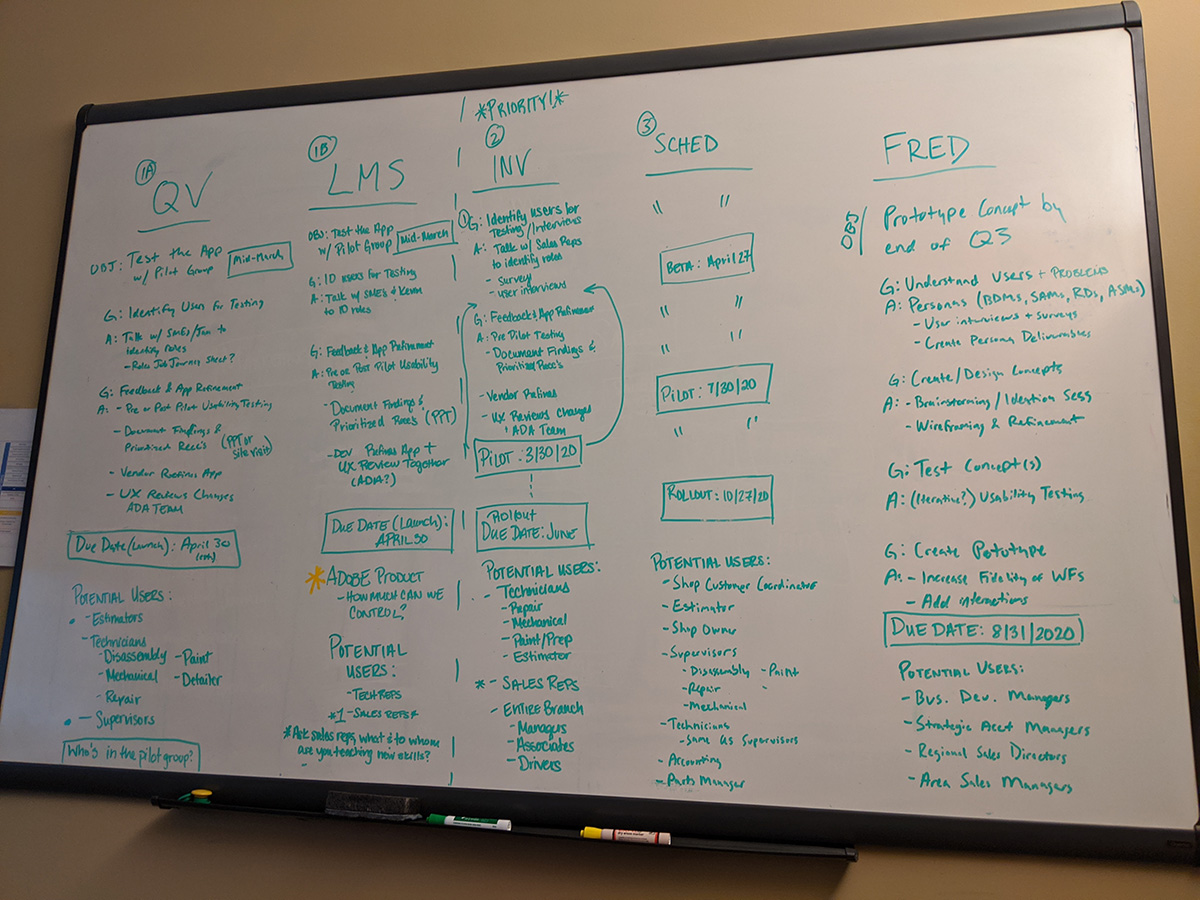 1A
QV
OBJ: Test the App
w/ Pilot Group
Mid-March
G: Identify Users for Testing
A: Talk w/ SMEs/Jan to
identify roles
- Roles Job Journey Sheet?
G: Feedback & App Refinement
A: - Pre or Post Pilot Usability Testing
- Document Findings &
Prioritized Recc's (PPT or
site visit)
- Vendor Refines App
- UX Reviews Changes
ADA TEAM
Due Date (Launch): April 30
POTENTIAL USERS:
- Estimators
- Technicians
- Disassembly - Paint
- Mechanical - Detailer
- Repair
- Supervisors
Who's in the pilot group?
1B
LMS
OBJ: Test the App
w/ Pilot Group
Mid-March
G: 10 users for Testing
A: Talk w/ SME's & Kevin
to 10 roles
G: Feedback & App Refinement
A: Pre or Post Pilot Usability
Testing
- Document Findings &
Prioritized Recc's (PPT)
- Dev Refines App +
UX Review Together
DUE DATE (Launch):
APRIL 30
* ADOBE PRODUCT
- HOW MUCH CAN WE
CONTROL?
POTENTIAL
USERS:
- TECH REPS
*1 - SALES REPS
* Ask sales reps, what & to whom
are you teaching new skills?
-
*PRIORITY!*
2
INV
1 G: Identify users for
Testing/Interviews
A: Talk w/ Sales Reps
to identify roles
- Survey
- user interviews
G: Feedback & App Refinement
A: Pre Pilot Testing
- Document Findings &
Prioritized Recc's
- Vendor Refines
- UX Reviews Changes
ADA Team
PILOT: 3/30/20
Rollout
DUE DATE: JUNE
POTENTIAL USERS:
- Technicians
- Repair
- Mechanical
- Paint/Prep
- Estimator
* - SALES REPS
- ENTIRE BRANCH
- Managers
- Associates
- Drivers
3
SCHED
" "
BETA: April 27
" "
" "
PILOT: 7/30/20
" "
ROLLOUT: 10/27/20
POTENTIAL USERS:
- Shop Customer Coordinators
- Estimator
- Shop Owner
- Supervisors
- Disassembly - Paint
- Repair -
- Mechanical
- Technicians
- Same as Supervisors
- Accounting
- Parts Manager
FRED
OBJ
Prototype Concept by
end of Q3
G: Understand Users + PROBLEMS
A: Personas (BDMs, SAMs, RDs, ASMs)
- User interviews + surveys
- Create Persona Deliverables
G: Create/Design Concepts
A: - Brainstorming / Ideation Sess
- Wireframing & Refinement
G: Test Concept(s)
A: (Iterative?) Usability Testing
G: Create Pototype
A: - Increase Fidelity of WFs
- Add interactions
DUE DATE: 8/31/2020
POTENTIAL USERS:
- Bus. Dev. Managers
- Strategic Acct Managers
- Regional Sales Directors
- Area Sales Managers